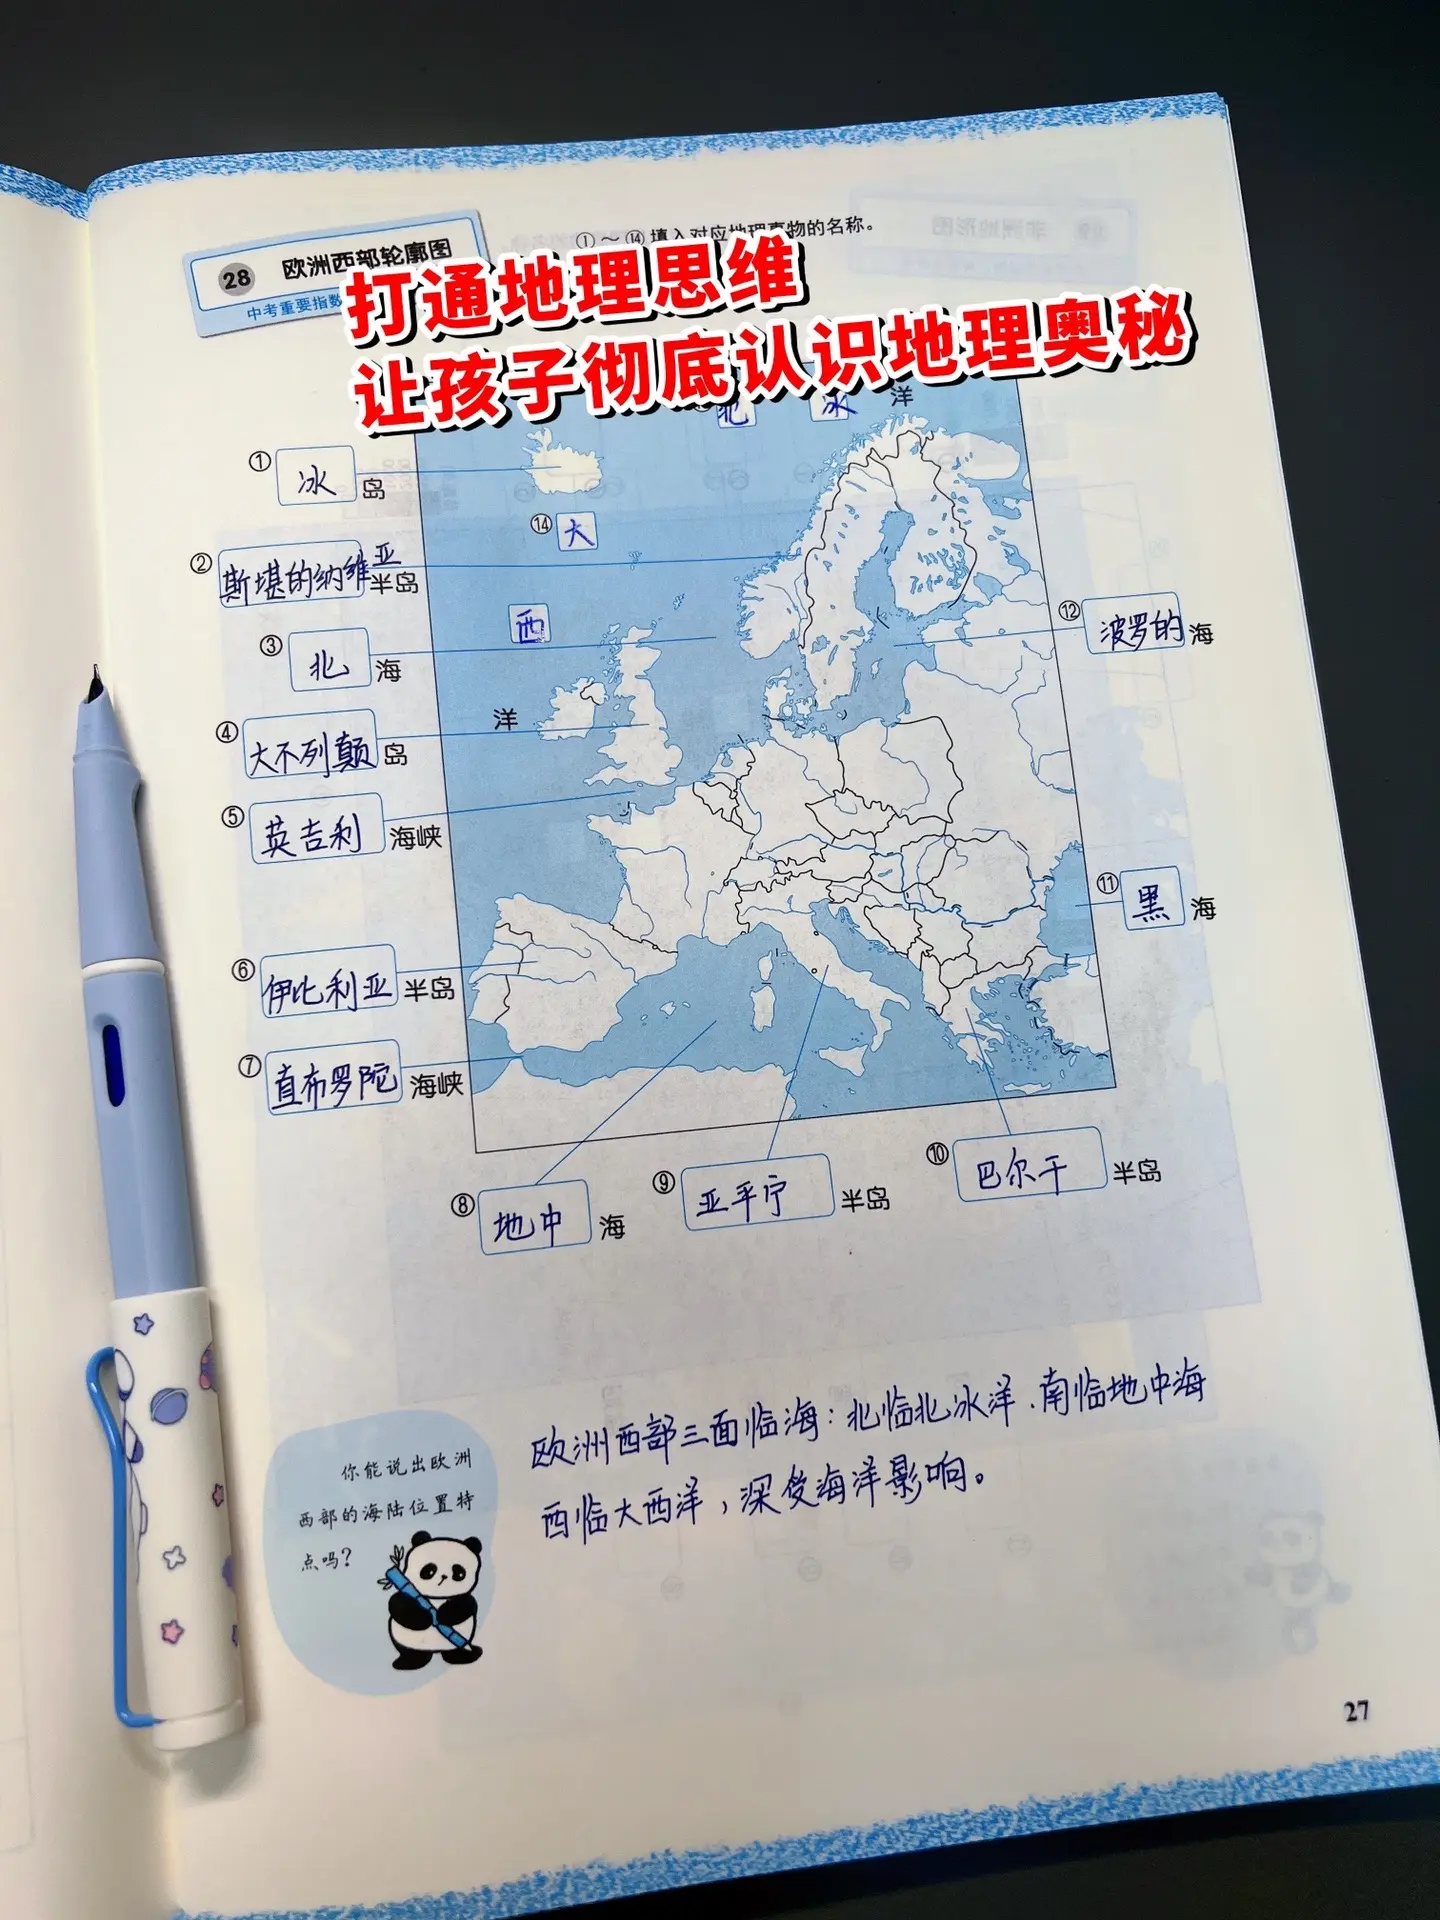 ① ～ ⑭ 填入对应地理事物的名称。
28 欧洲西部轮廓图
中考重要指数
打通地理思维
让孩子彻底认识地理奥秘
北 冰 洋
① 冰 岛
⑭ 大
② 斯堪的纳维亚 半岛
西
⑫ 波罗的 海
③ 北 海
洋
④ 大不列颠 岛
⑤ 英吉利 海峡
⑪ 黑 海
⑥ 伊比利亚 半岛
⑦ 直布罗陀 海峡
⑧ 地中 海
⑨ 亚平宁 半岛
⑩ 巴尔干 半岛
欧洲西部三面临海：北临北冰洋、南临地中海
西临大西洋，深受海洋影响。
你能说出欧洲
西部的海陆位置特
点吗？
27